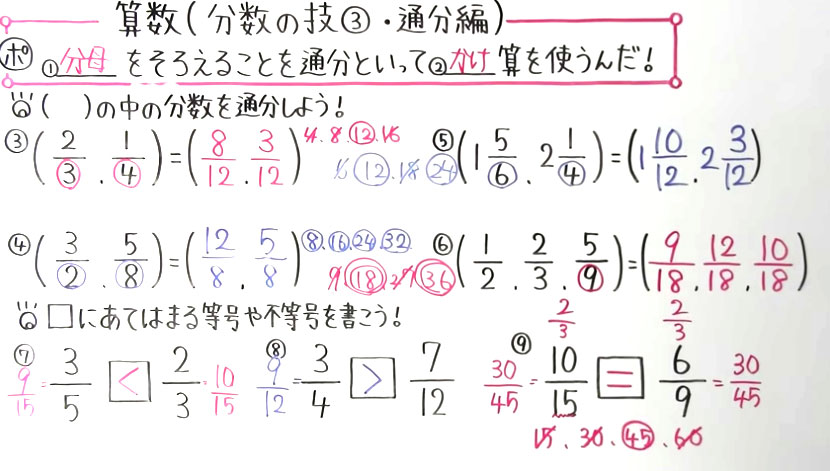 算数(分数の技③・通分編)
ポ ①分母をそろえることを通分といって②かけ算を使うんだ!
( )の中の分数を通分しよう!
③(2/3 . 1/4)=(8/12 . 3/12) 4.8.12.16
⑤(1 5/6 . 2 1/4)=(1 10/12 . 2 3/12) 6.12.18.24
④(3/2 . 5/8)=(12/8 . 5/8) 8.16.24.32
⑥(1/2 . 2/3 . 5/9)=(9/18 . 12/18 . 10/18) 9.18.27.36
□にあてはまる等号や不等号を書こう!
⑦ 9/15=3/5 < 2/3=10/15
⑧ 9/12=3/4 > 7/12
⑨ 2/3 2/3
30/45=10/15 = 6/9=30/45
15.30.45.60